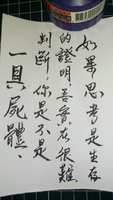 如果思考是生存
的證明,吾實在很難
判斷,你是不是
一具屍體、